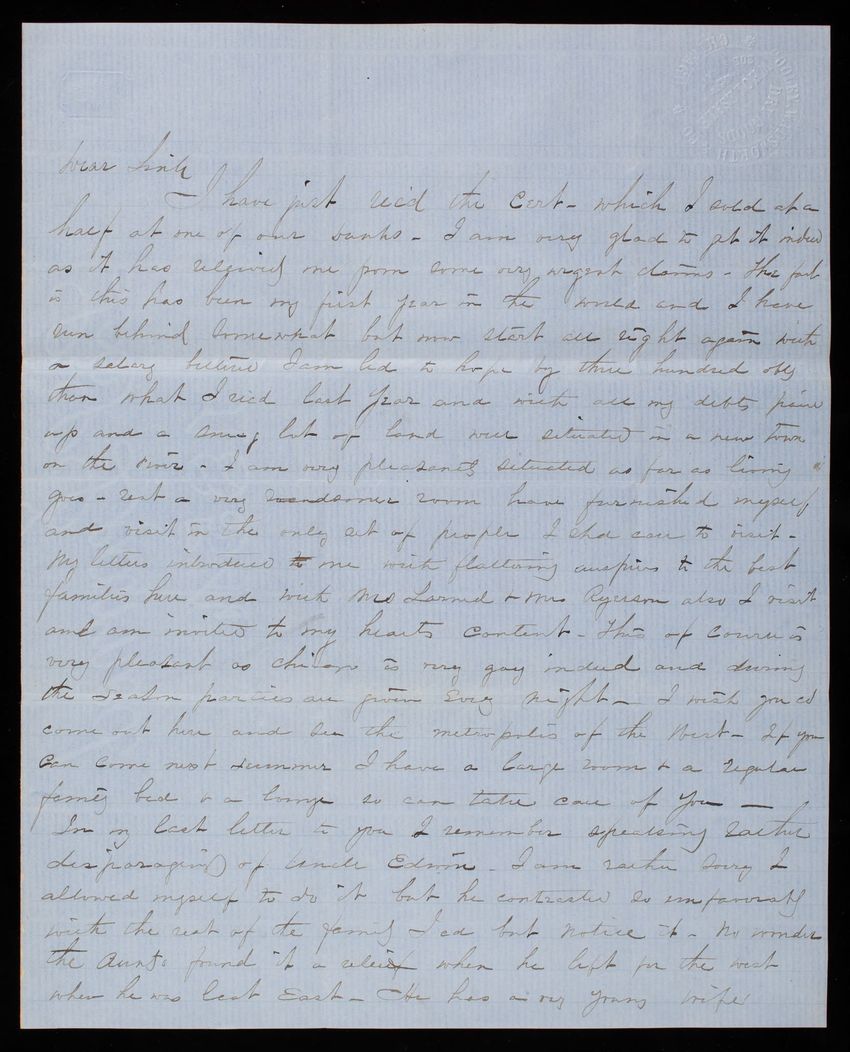 COOLEY, WADSWORTH & CO
DRY GOODS
CHICAGO
Dear Linle
I have just rec'd the Cert - which I sold at a
half at one of our banks - I am very glad to get it indeed
as it has relieved me from some very urgent claims - The fact
is this has been my first year in the world and I have
run behind somewhat but now start all right again with
a salary better I am led to hope by three hundred dolls
than what I rec'd last year and with all my debts paid
up and a snug lot of land well situated in a new town
on the river - I am very pleasantly situated as far as living
goes - rent a very handsome room have furnished myself
and visit in the only set of people I shd care to visit -
My letters introduced me with flattering auspices to the best
families here and with Mrs Larned & Mrs Ryerson also I visit
and am invited to my hearts content - This of course is
very pleasant as Chicago is very gay indeed and during
the season parties are given every night - I wish you cd
come out here and see the metropolis of the West - If you
can come next summer I have a large room & a regular
family bed & a lounge so can take care of you -
In my last letter to you I remember speaking rather
disparagingly of Uncle Edwin - I am rather sorry I
allowed myself to do it but he contrasted so unfavorably
with the rest of the family I cd but notice it - No wonder
the Aunts found it a relief when he left for the west
when he was last East - He has a very young wife